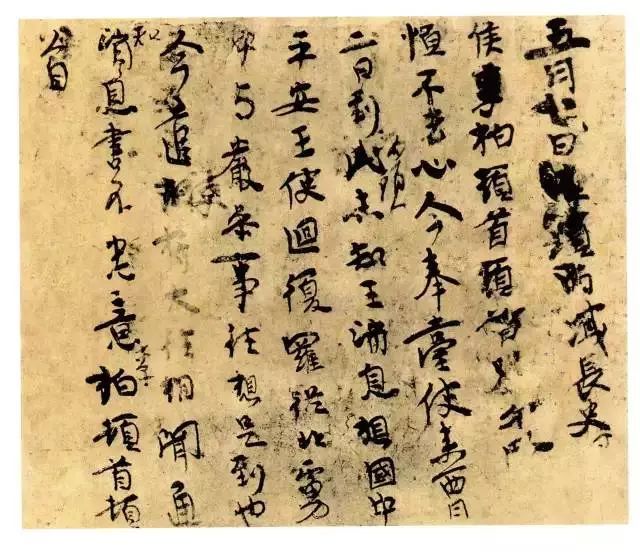 五月七日 西域長史
侯李柏頓首頓首別
恒不去心今奉臺使來西月
二日到此未知王消息想國中
平安王使迴復羅從北虜
中与嚴參事往想是到也
今遣使苻大往相聞通
知消息書不悉意李柏頓首頓
首